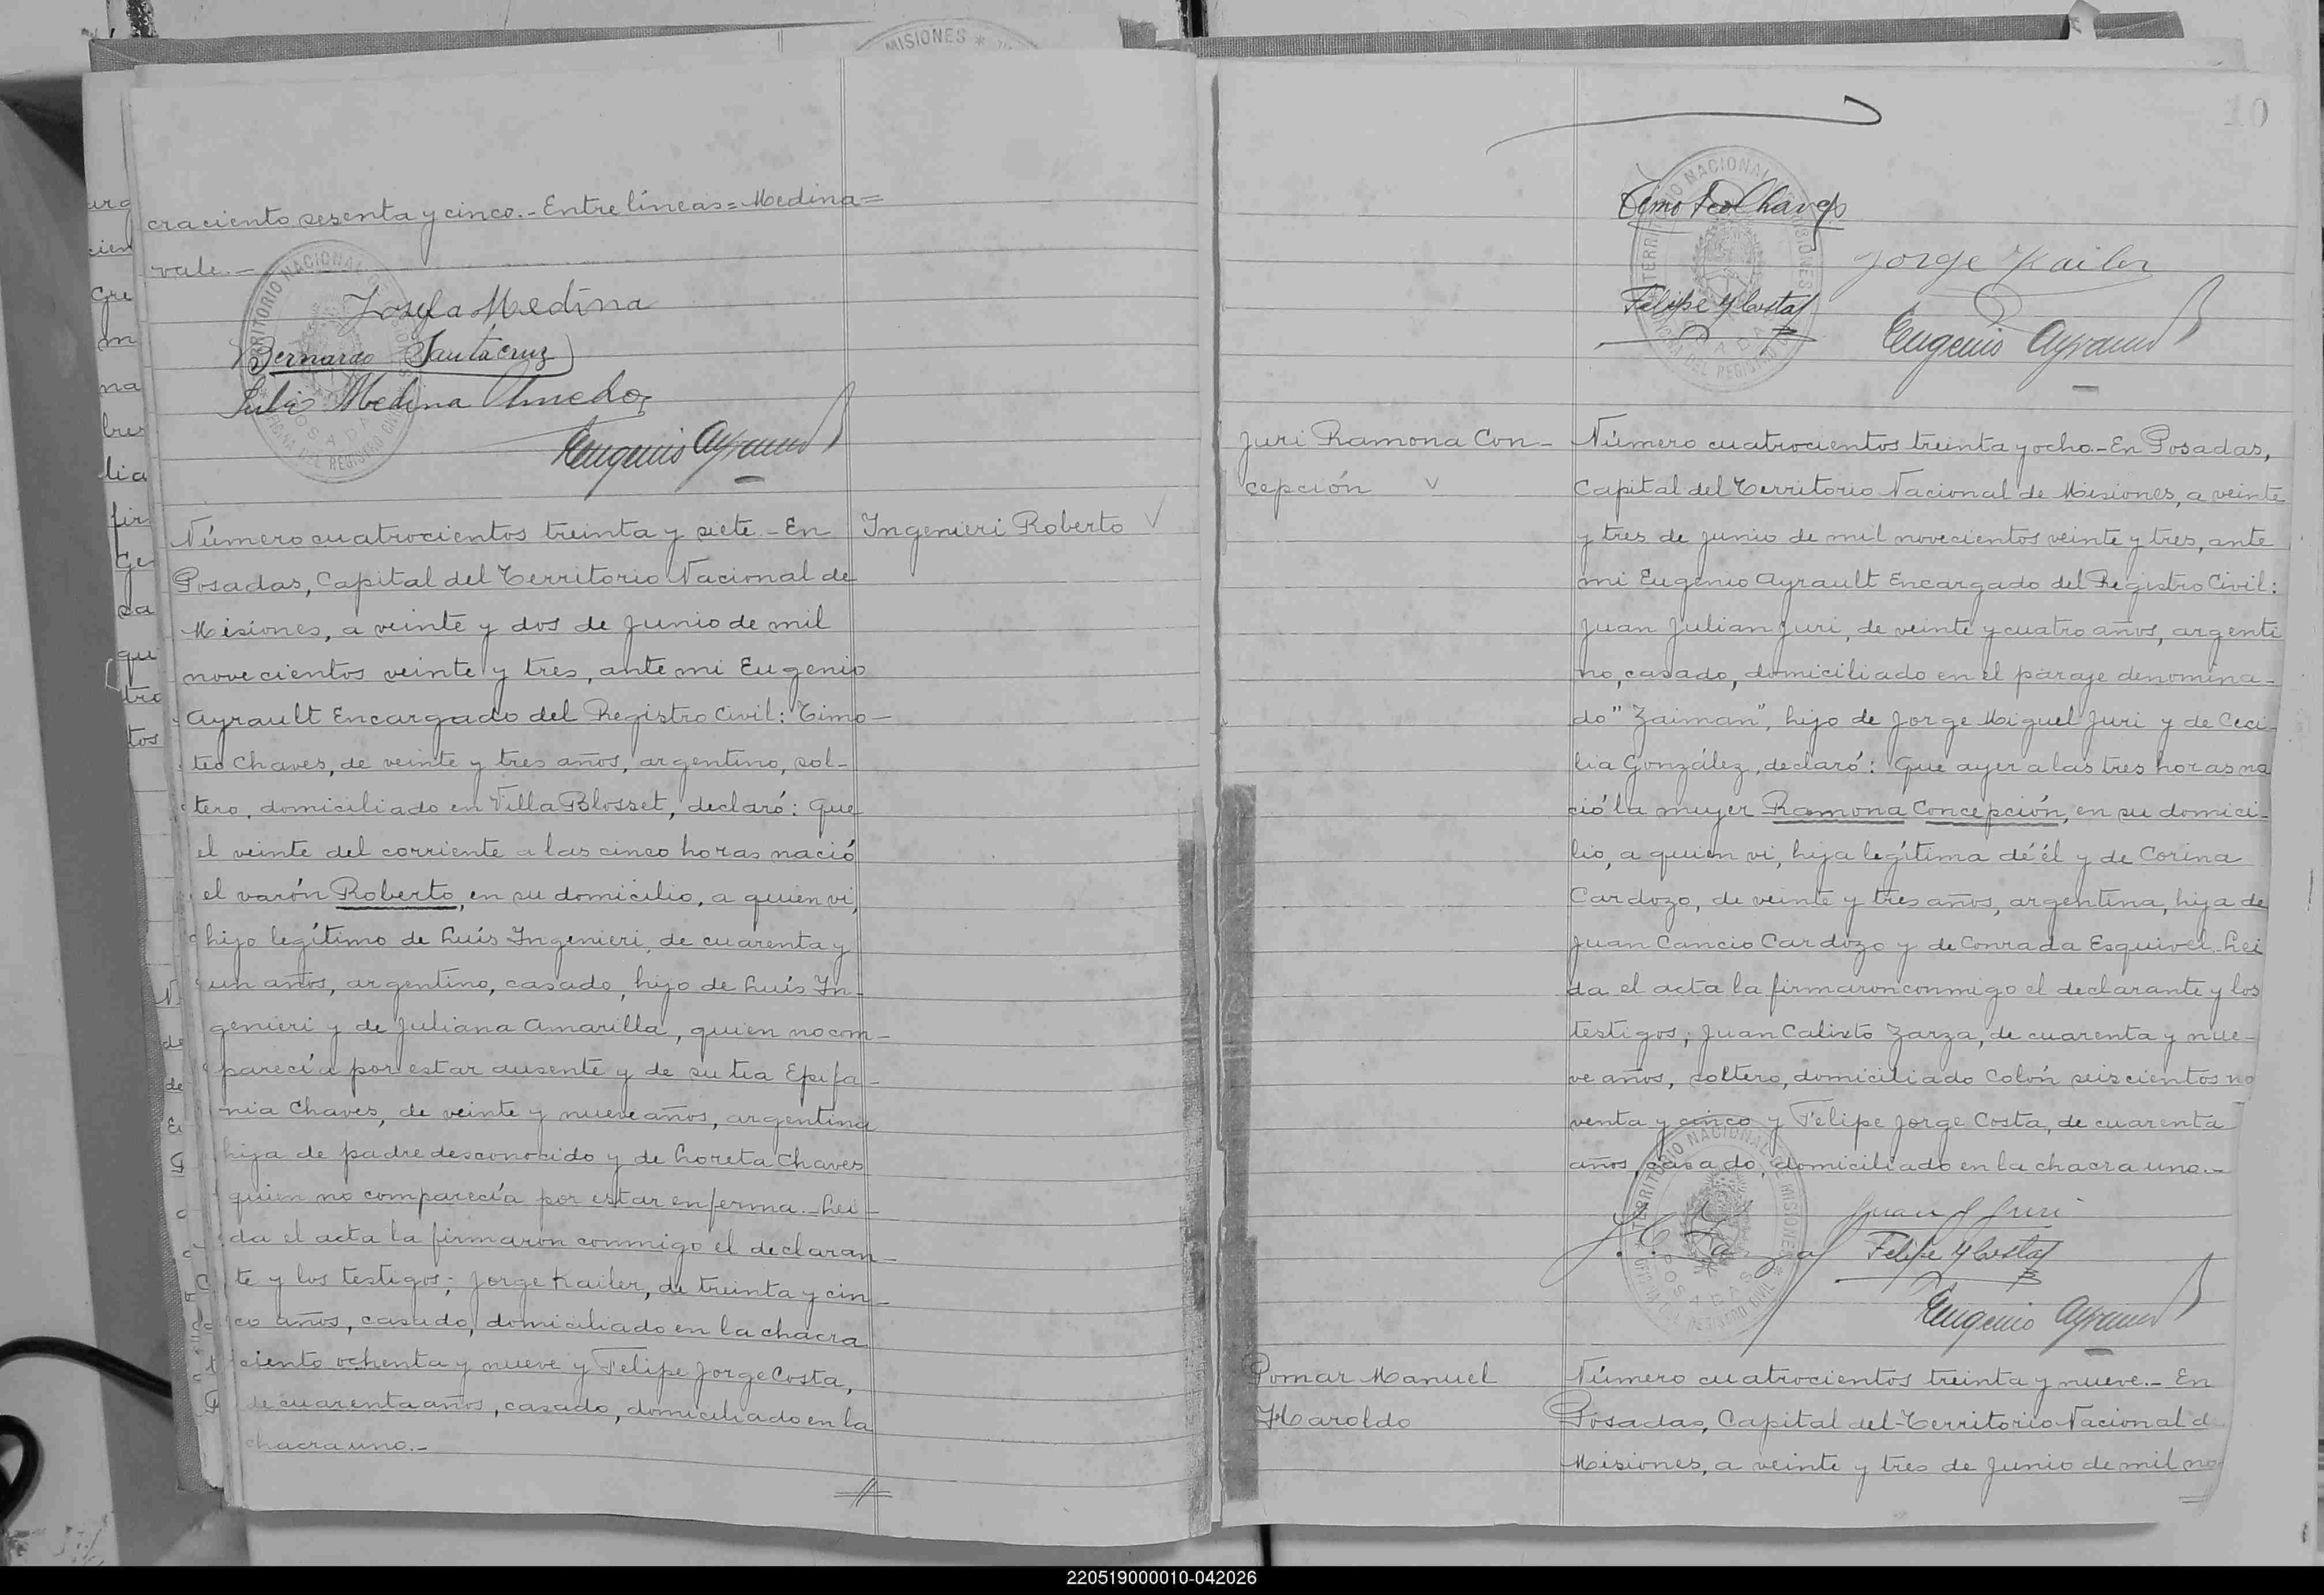 MISIONES *
craciento sesenta y cinco.- Entre líneas = Medina =
vale.-
Josefa Medina
Bernardo Santacruz
Julio Medina Olmedo
Eugenio Ayrault
Número cuatrocientos treinta y siete.- En
Ingenieri Roberto
Posadas, Capital del Territorio Nacional de
Misiones, a veinte y dos de Junio de mil
novecientos veinte y tres, ante mi Eugenio
Ayrault Encargado del Registro Civil: Timo-
teo Chaves, de veinte y tres años, argentino, sol-
tero, domiciliado en Villa Blosset, declaró: Que
el veinte del corriente a las cinco horas nació
el varón Roberto, en su domicilio, a quien vi,
hijo legítimo de Luís Ingenieri, de cuarenta y
un años, argentino, casado, hijo de Luís In-
genieri y de Juliana Amarilla, quien no com-
parecía por estar ausente y de su tia Epifa-
nia Chaves, de veinte y nueve años, argentina
hija de padre desconocido y de Loreta Chaves
quien no comparecía por estar enferma.- Lei-
da el acta la firmaron conmigo el declaran-
te y los testigos; Jorge Kailer, de treinta y cin-
co años, casado, domiciliado en la chacra
ciento ochenta y nueve y Felipe Jorge Costa,
de cuarenta años, casado, domiciliado en la
chacra uno.-
10
Timoteo Chaves
Jorge Kailer
Felipe J Costa
Eugenio Ayrault
Juri Ramona Con-
cepción
Número cuatrocientos treinta y ocho.- En Posadas,
Capital del Territorio Nacional de Misiones, a veinte
y tres de Junio de mil novecientos veinte y tres, ante
mi Eugenio Ayrault Encargado del Registro Civil:
Juan Julian Juri, de veinte y cuatro años, argenti
no, casado, domiciliado en el paraje denomina-
do "Zaiman", hijo de Jorge Miguel Juri y de Ceci-
lia González, declaró: Que ayer a las tres horas na
ció la mujer Ramona Concepción, en su domici-
lio, a quien vi, hija legítima dé él y de Corina
Cardozo, de veinte y tres años, argentina, hija de
Juan Cancio Cardozo y de Conrada Esquivel. Lei
da el acta la firmaron conmigo el declarante y los
testigos; Juan Calixto Zarza, de cuarenta y nue-
ve años, soltero, domiciliado Colón seiscientos no
venta y cinco y Felipe Jorge Costa, de cuarenta
años, casado, domiciliado en la chacra uno.-
Juan J Juri
J. C. Zarza
Felipe J Costa
Eugenio Ayrault
Pomar Manuel
Haroldo
Número cuatrocientos treinta y nueve.- En
Posadas, Capital del Territorio Nacional d
Misiones, a veinte y tres de Junio de mil no
220519000010-042026